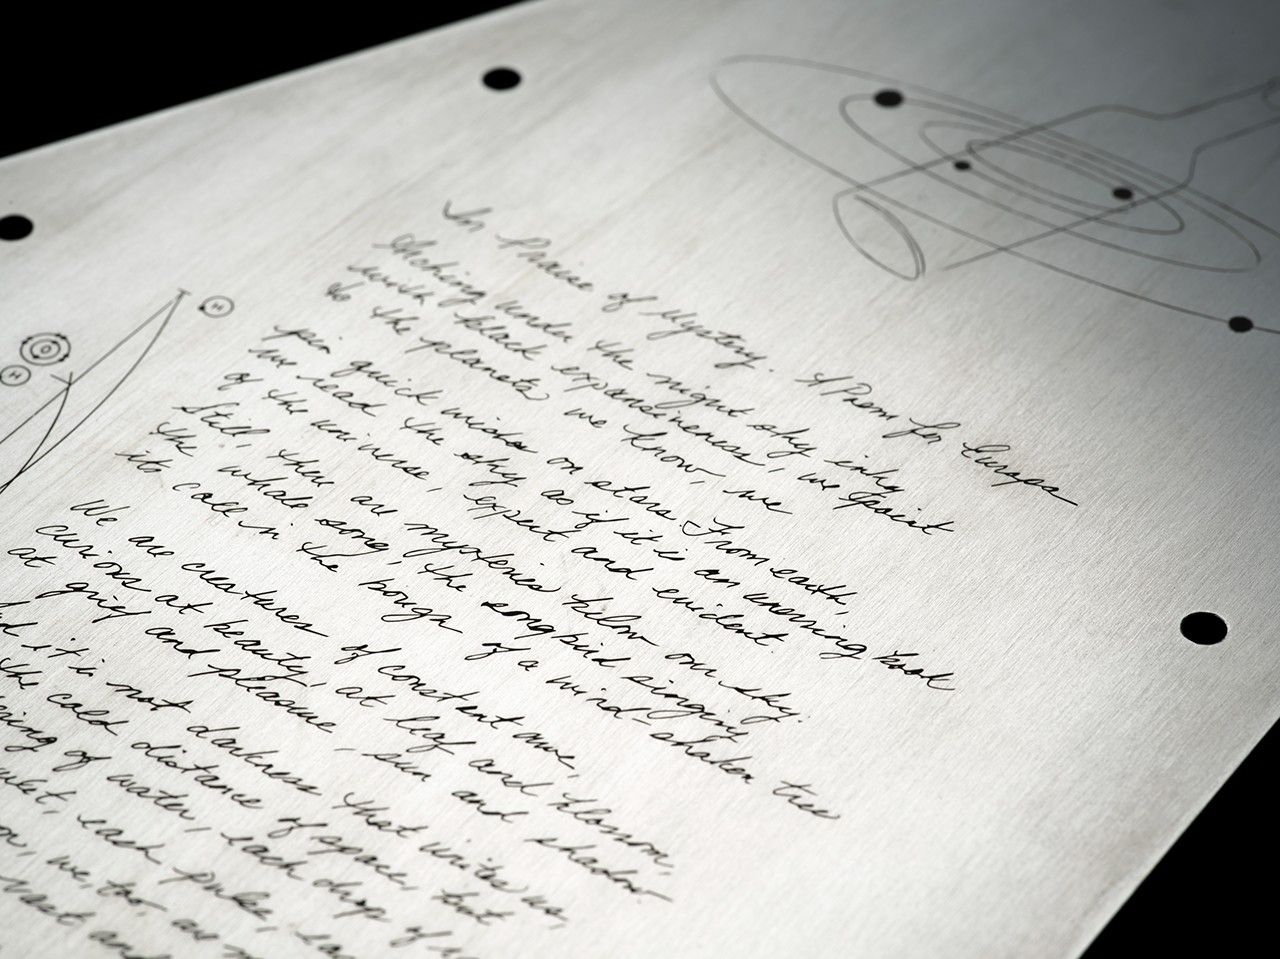 In Praise of Mystery: A Poem for Europa
Arching under the night sky inky
with black expansiveness, we point
to the planets we know, we
pin quick wishes on stars. From earth,
we read the sky as if it is an unerring book
of the universe, expert and evident.
Still, there are mysteries below our sky:
the whale song, the songbird singing
its call in the bough of a wind-shaken tree
We are creatures of constant awe,
curious at beauty, at leaf and blossom,
at grief and pleasure, sun and shadow.
it is not darkness that unites us,
the cold distance of space, but
of water, each drop of
each pulse, each
we, too, are
vast and
H
O
H